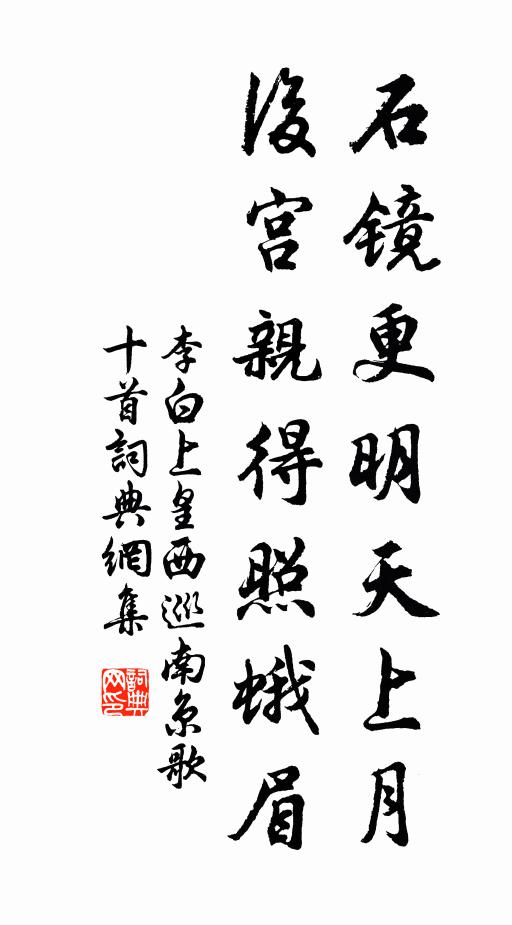 石镜更明天上月
後宫親得照蛾眉
李白上皇西巡南京歌
十首詞典網集
詞典网印